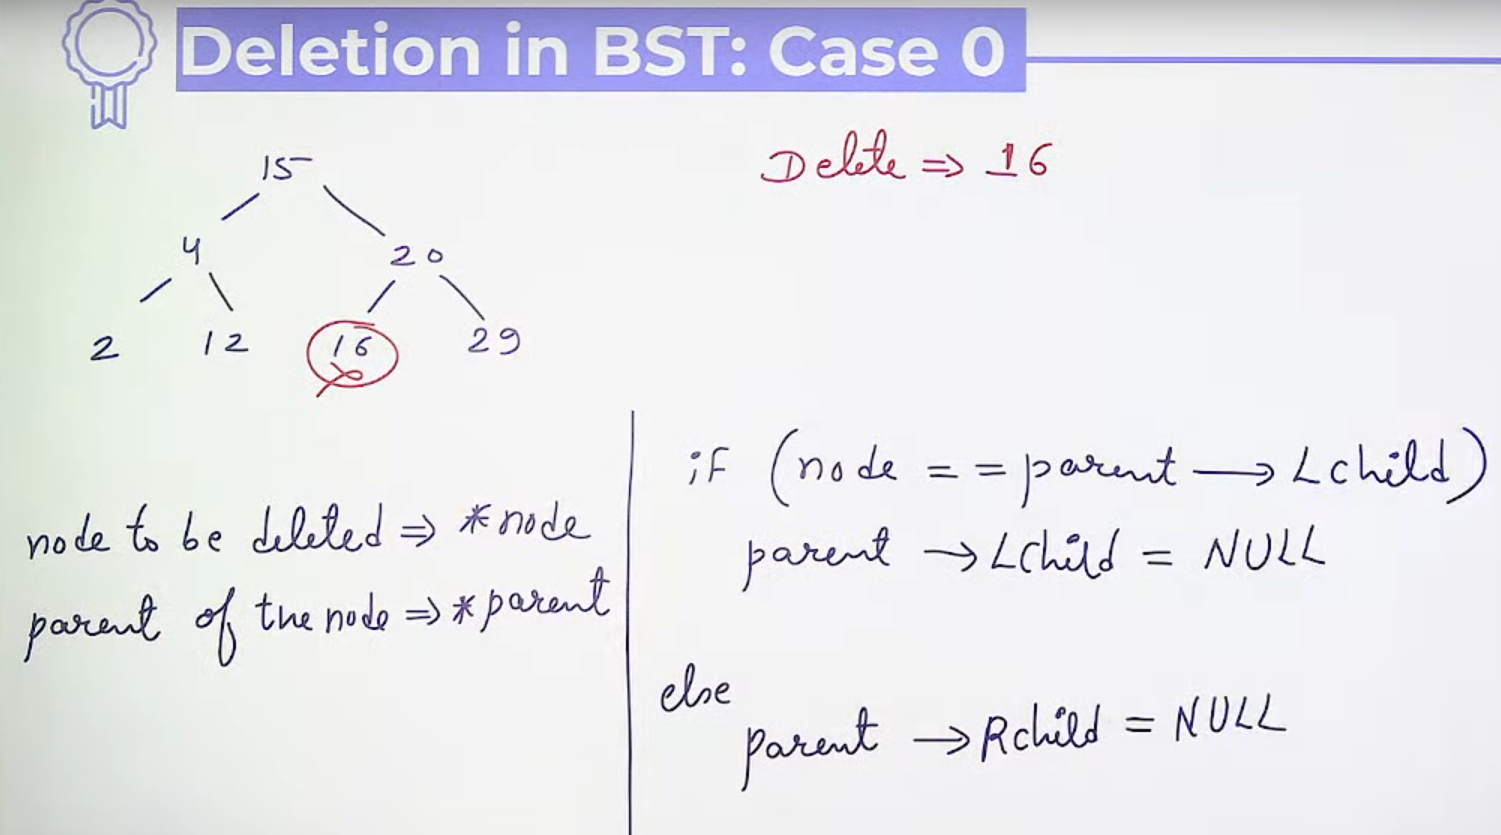 Deletion in BST: Case 0
Delete ⇒ 16
15
4 20
2 12 16 29
node to be deleted ⇒ *node
parent of the node ⇒ *parent
if (node == parent → Lchild)
parent → LChild = NULL
else
parent → Rchild = NULL